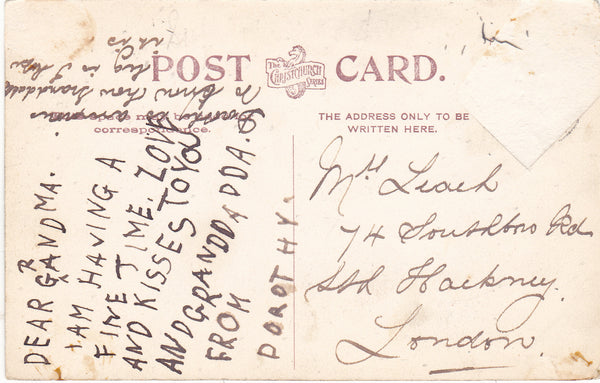 POST CARD.
The
CHRISTCHURCH
SERIES
THE ADDRESS ONLY TO BE
WRITTEN HERE.
correspondence.
DEAR GRANDMA.
I AM HAVING A
FINE TIME. LOVE
AND KISSES TO YOU
AND GRANDDADDA.
FROM
DOROTHY.
Mrs Leach
74 Southboro Rd
Sth Hackney.
London.